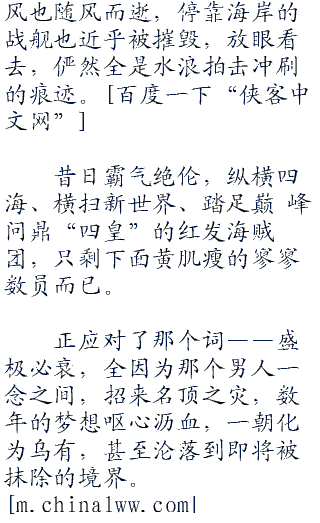 风也随风而逝，停靠海岸的
战舰也近乎被摧毁，放眼看
去，俨然全是水浪拍击冲刷
的痕迹。[百度一下“侠客中
文网”]
昔日霸气绝伦，纵横四
海、横扫新世界、踏足巅 峰
问鼎“四皇”的红发海贼
团，只剩下面黄肌瘦的寥寥
数员而已。
正应对了那个词——盛
极必衰，全因为那个男人一
念之间，招来名顶之灾，数
年的梦想呕心沥血，一朝化
为乌有，甚至沦落到即将被
抹除的境界。
[m.china1ww.com]